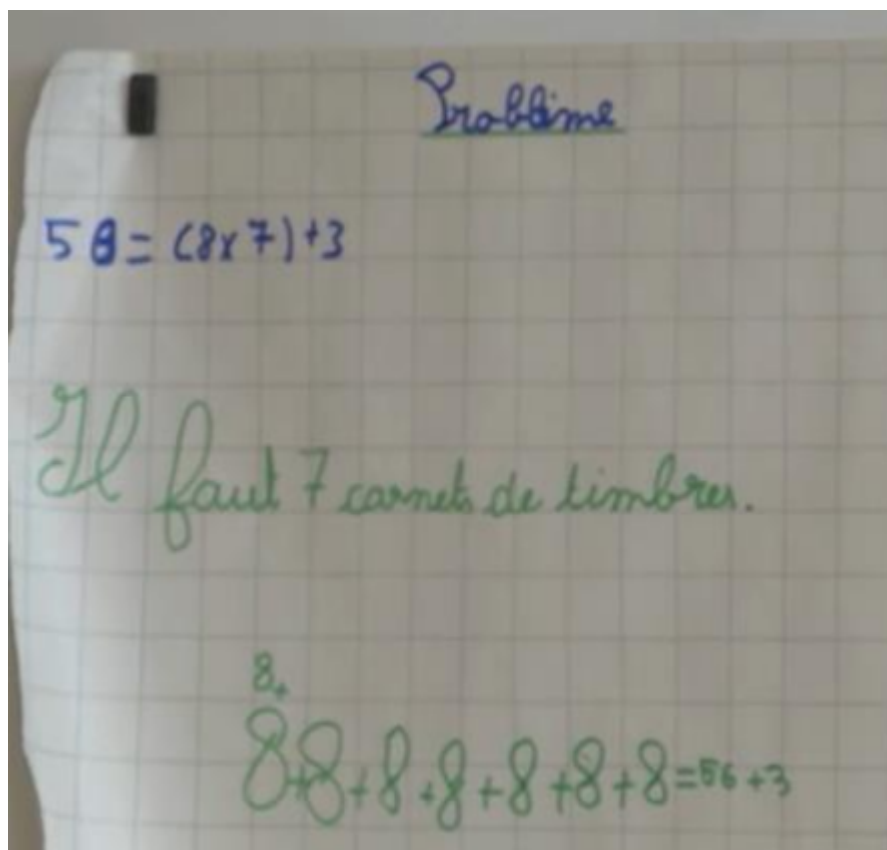 Problème
58 = (8x7)+3
Il faut 7 carnets de timbres.
8+
8+8+8+8+8+8+8=56+3